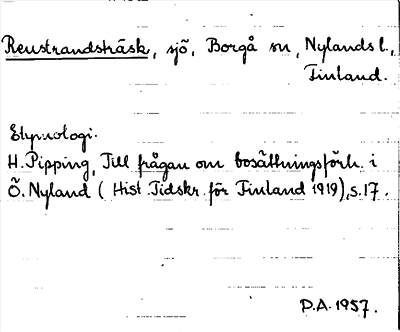 Renstrandsträsk, sjö, Borgå sn, Nylands l.,
Finland.
Etymologi.
H. Pipping, Till frågan om bosättningsförh. i
Ö. Nyland ( Hist. Tidskr. för Finland 1919), s. 17.
P.A. 1957.